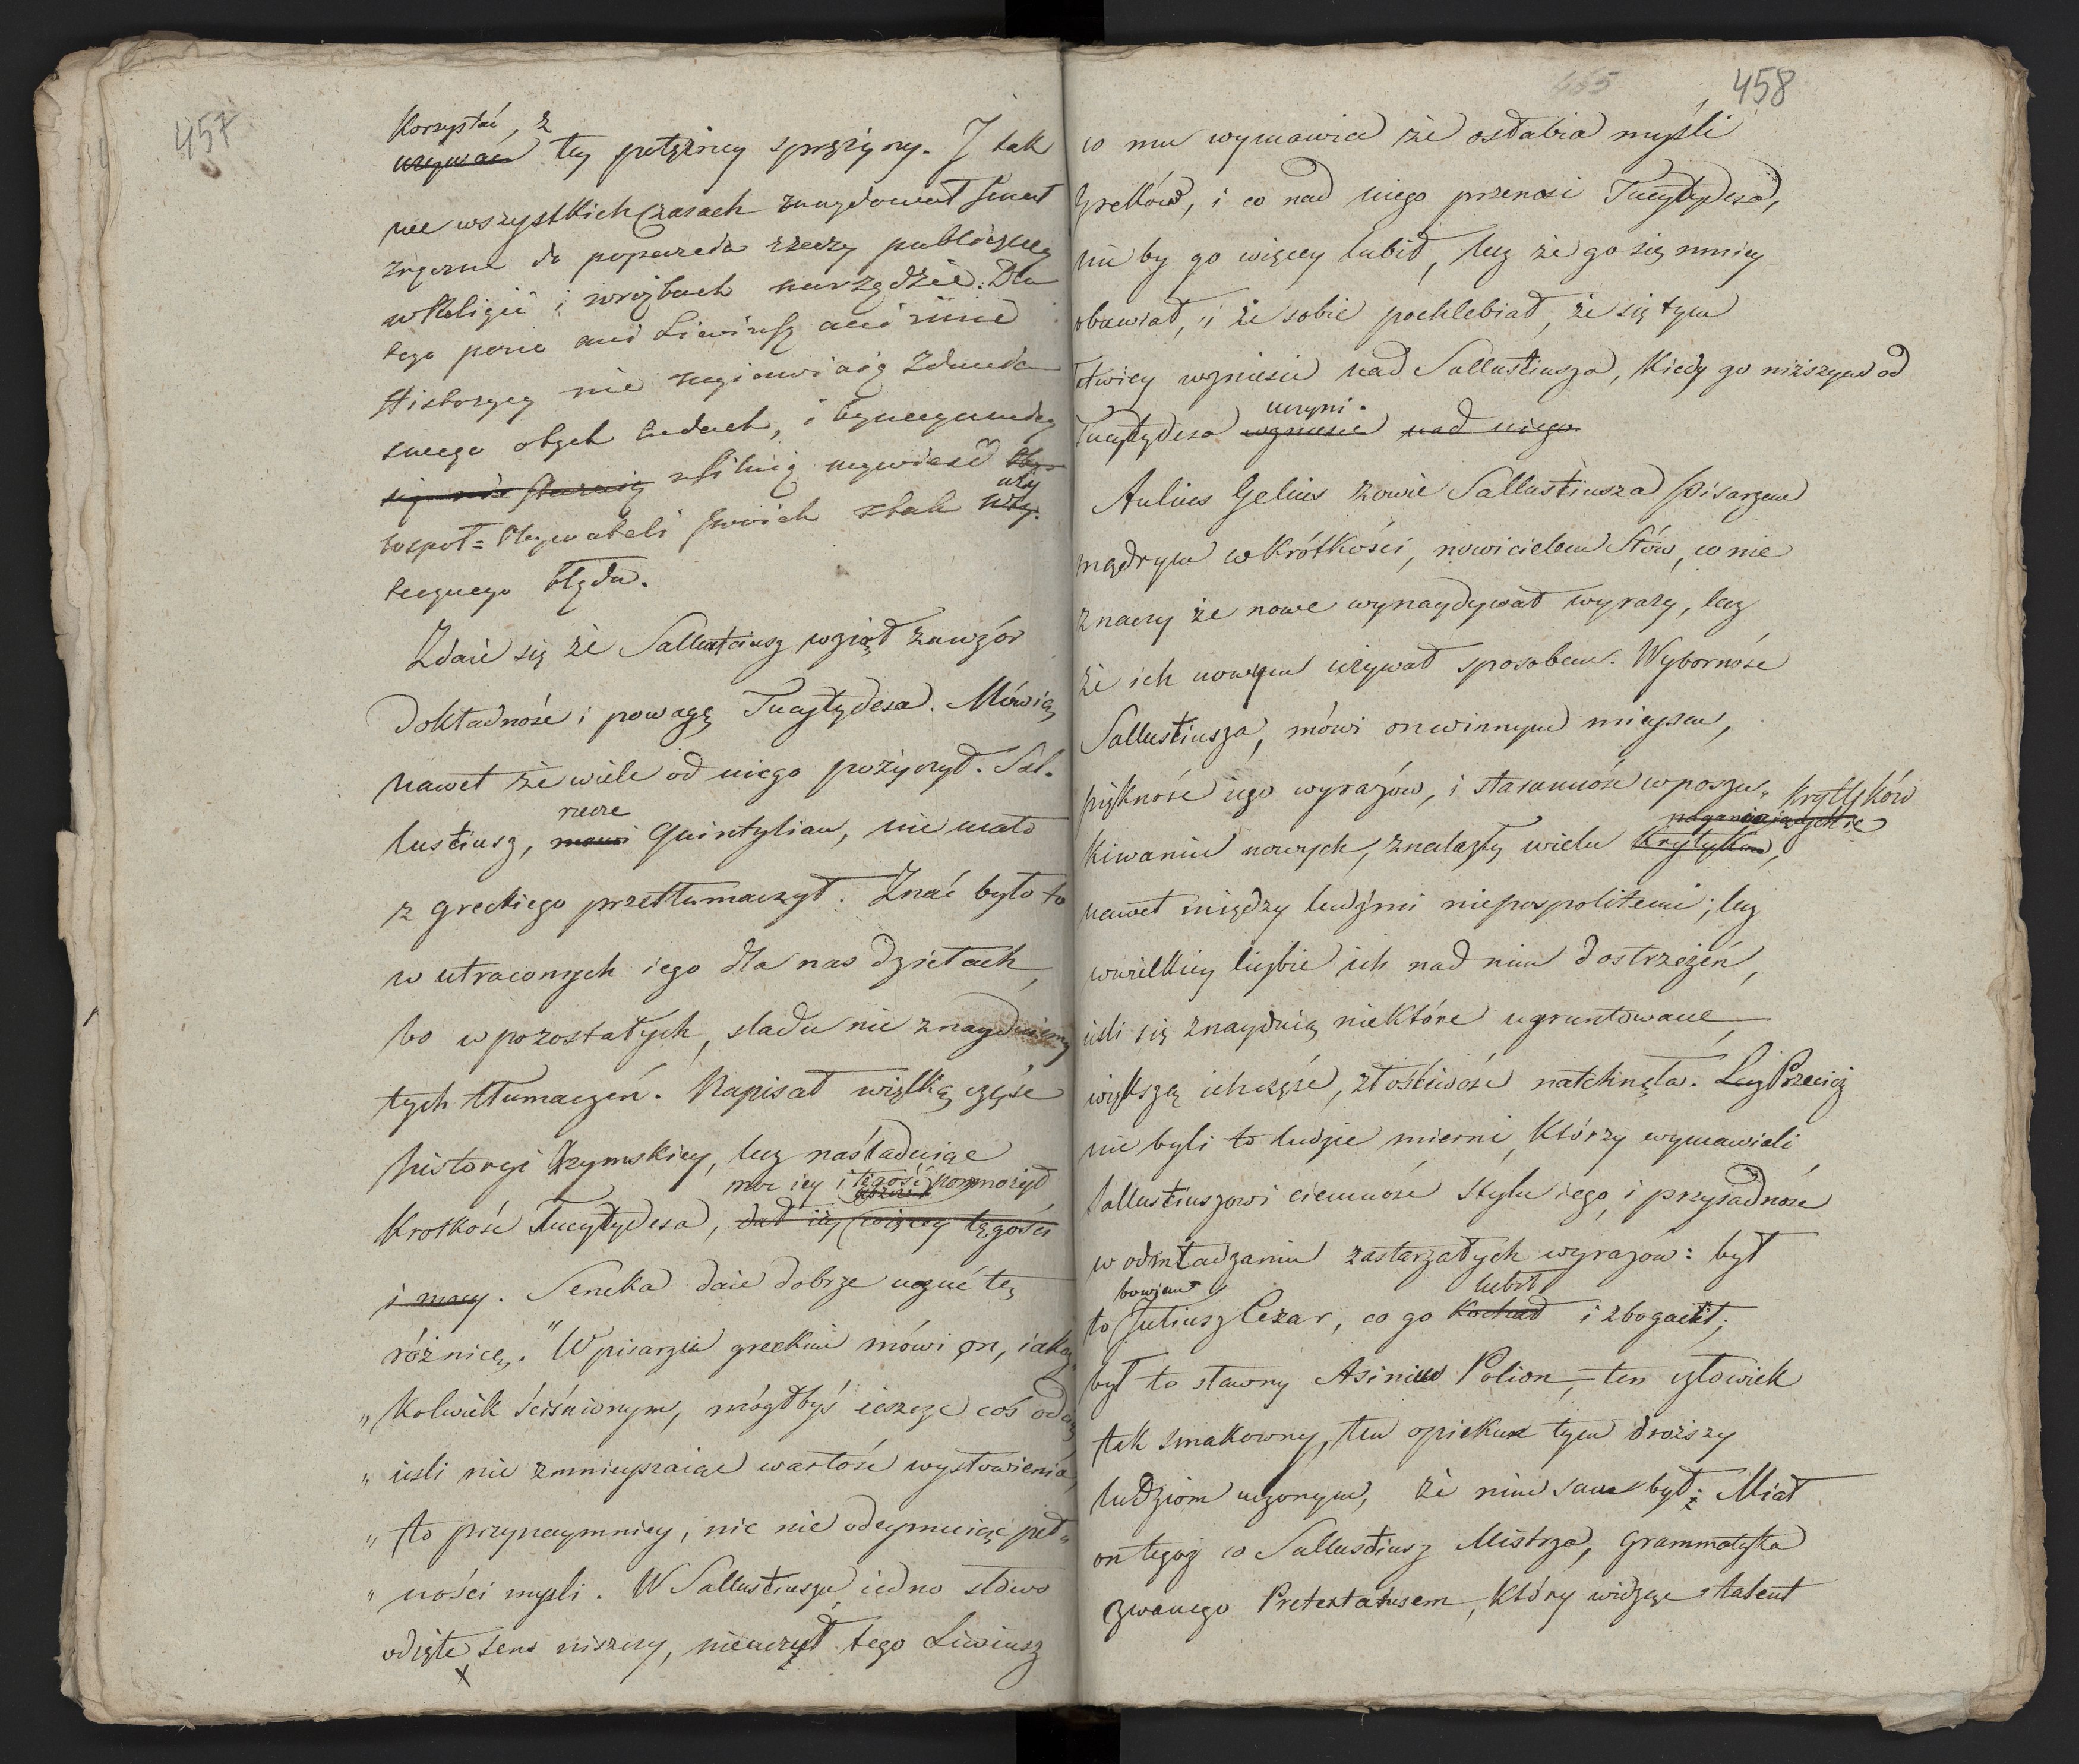 457
Korzystać, z
używać tey potężney sprężyny. I tak
we wszystkich czasach znaydował Senat
zręczne do poparcia rzeczy publiczney
w Religii i wróżbach narzędzie. Dla
tego pono ani Liwiusz ani inni
Historycy nie wyiawiaią zdania
swego o tych cudach, i bynaymniey
się nie staraią usiłuią wywieść
współ=Obywateli swoich z tak uży
tecznego błędu.
Zdaie się że Sallustiusz wziął za wzór
dokładność i powagę Tucytydesa. Mówią
nawet że wiele od niego pożyczył. Sal-
lustiusz, mowi rzecze Quintylian, nie mało
z greckiego przetłumaczył. Znać było to
w utraconych iego dla nas dziełach,
bo w pozostałych, sladu nie znayduiemy
tych tłumaczeń. Napisał wielką część
historyi Rzymskiey, lecz naśladuiąc
moc iey i tęgość pomnożył
Krotkość Tucytydesa, dał iey więcey tęgości
i mocy. Seneka daie dobrze uczuć tę
różnicę. "W pisarzu greckim mówi on, iakoż
„ kolwiek ściśnionym, mógłbyś ieszcze coś odciąć
„ ieśli nie zmnieyszaiąc wartość wysłowienia,
„ to przynaymniey, nic nie odeymuiąc peł„
„ ności mysli. W Sallustiuszu, iedno słowo
odięte sens niszczy, nieuczuł tego Liwiusz
x
465
458
co mu wymawia że osłabia myśli
Greków, i co nad niego przenosi Tucytydesa,
nie by go więcey lubił, lecz że go się mniey
obawiał, i że sobie pochlebiał, że się tym
łatwiey wzniesie nad Sallustiusza, kiedy go niższym od
uczyni.
Tucytydesa wzniesie nad niego
Aulius Gelius zowie Sallustiusza Pisarzem
mądrym w krótkości, nowicielem Słów, co nie
znaczy że nowe wynaydywał wyrazy, lecz
że ich nowym używał sposobem. Wyborność
Sallustiusza, mówi on w innym mieyscu,
piękność iego wyrazów, i staranność w poszu„
krytyków
kiwaniu nowych, znalazły wielu Krytyków,
nawet między ludźmi niepospolitemi; lecz
w wielkiey liczbie ich nad nim dostrzeżeń,
ieśli się znayduią niektóre ugruntowane,
większą ich część, złośliwość natchnęła. Lecz Przecież
nie byli to ludzie mierni, którzy wymawiali
Sallustiuszowi ciemność stylu iego, i przysadność
w odmładzaniu zastarzałych wyrazów: był
bowiem lubił
to Juliusz Cezar, co go kochał i zbogacił;
był to sławny Asinius Polion, ten człowiek
tak smakowny, ten opiekun tym droższy
ludziom uczonym, że nim sam był: Miał
on tegoż co Sallustiusz Mistrza, Grammatyka
zwanego Pretextatusem, który widząc talent